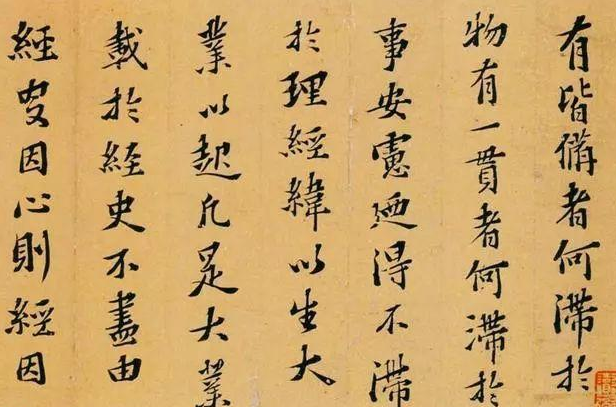 有皆備者何滯於
物有一貫者何滯於
事安慮迺得不滯
於理經緯以生大
業以起凡是大業
載於經史不盡由
經史因心則經因